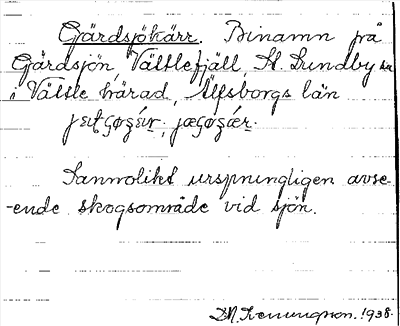 Gärdsjökärr. Binamn på
Gärdsjön Vättlefjäll, St. Lundby sn
i Vättle härad, Älfsborgs län
Sannolikt urspnungligen avse-
-ende skogsområde vid sjön.
1938.